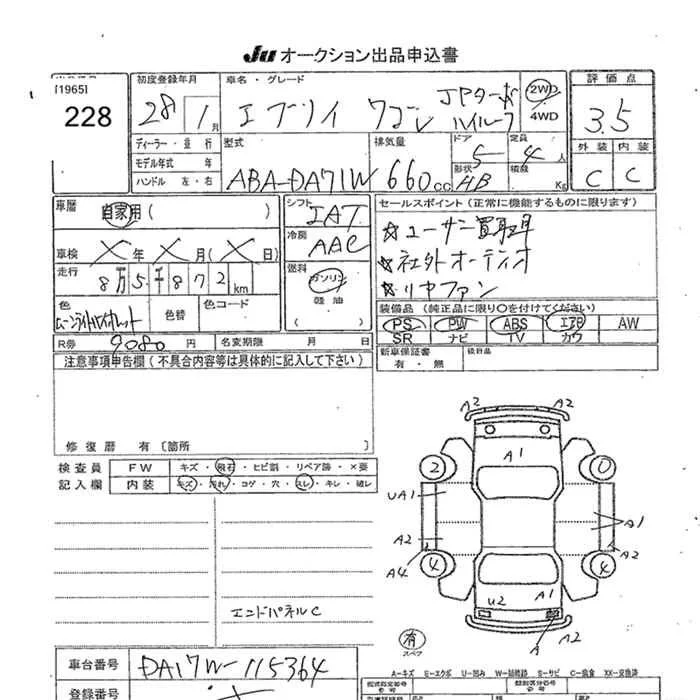 Ju オークション出品申込書
[1965]
228
初度登録年月
28 1 月
車名・グレード
エブリイ ワゴン JPターボ ハイルーフ
2WD
4WD
評価点
3.5
外装 内装
C C
ディーラー・並行
モデル年式 年
ハンドル 左・右
型式
ABA-DA71W
排気量
660cc
ドア
5
形状
HB
定員
4人
積載
Kg
車歴
自家用( )
シフト
IAT
車検 × 年 × 月(× 日)
冷房
AAC
走行
8万5千872km
燃料
ガソリン
軽油
( )
色
ムーンライトバイオレット
色替
色コード
セールスポイント(正常に機能するものに限ります)
☆ユーザー買取車
☆社外オーディオ
☆リヤファン
装備品(純正品に限り○を付けてください)
PS PW ABS エアB AW
SR ナビ TV カワ
R券 9080 円 名変期限 月 日
新車保証書
有・無
後日品
注意事項申告欄(不具合内容等は具体的に記入して下さい)
修復歴 有[箇所
検査員
記入欄
FW キズ・飛石・ヒビ割・リペア跡・×要
内装 キズ・汚れ・コゲ・穴・スレ・キレ・破レ
A2 A2
A1
2 0
UA1
A1
A2
A2
A4
4 4
U2 A1
A A2
エンドパネルC
有
スペア
A-キズ E-エクボ U-凹み W-補修跡 S-サビ C-腐食 XX-交換済
車台番号
DA17W-115364
登録番号